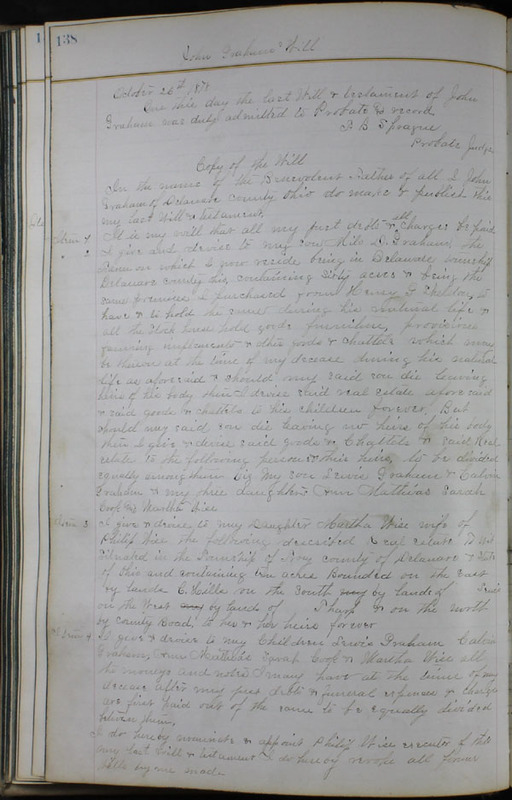 138
John Grahams Will
October 26th 1878
One this day the last Will & testament of John
Graham was duly admitted to Probate & record
B Sprague
Probate Judge
Copy of the Will
In the name of the Benevolent Father of all I John
Graham of Delaware county Ohio do make & publish this
my last Will & testament
Item 1 It is my will that all my just debts & all charges be paid
I give and devise to my son D. Graham, the
farm on which I now reside being in Delaware township
Delaware county containing acres & being the
same premises I purchased from Henry G Sheldon, to
have & to hold the same during his natural life &
all the stock house hold goods furniture, provisions
farming impliments & other goods & chattels which may
be theron at the time of my decease during his natural
life as aforesaid & should my said son die leaving
heirs of the body then I devise said real estate aforesaid
& said goods & chattels to his children forever, But
should my said son die leaving no heirs of his body
then I give & devise said goods & Chattels & said Real
estate to the following persons & their heirs to be divided
equally among them viz My son Lewis Graham & Calvin
Graham & my three daughters Ann Sarah
& Martha Wise
Item 3 I give & devise to my Daughter Martha Wise wife of
Philip Wise the following described real estate To Wit
Situated in the Township of Troy county of Delaware & State
of Ohio and containing ten acres Bounded on the East
by lands C. Hills on the South by lands of
on the West by lands of Sharp & on the north
by County Road, to her & her heirs forever
Item 4 I give & devise to my Children Lewis Graham Calvin
Graham, Ann Sarah & Martha Wise all
the moneys and notes I may have at the time of my
decease after my just debts & funeral expenses & charges
are first paid out of the same to be equally divided
between them,
I do hereby nominate & appoint Philip Wise executor of this
my last Will & testament I do hereby revoke all former
Wills by me made